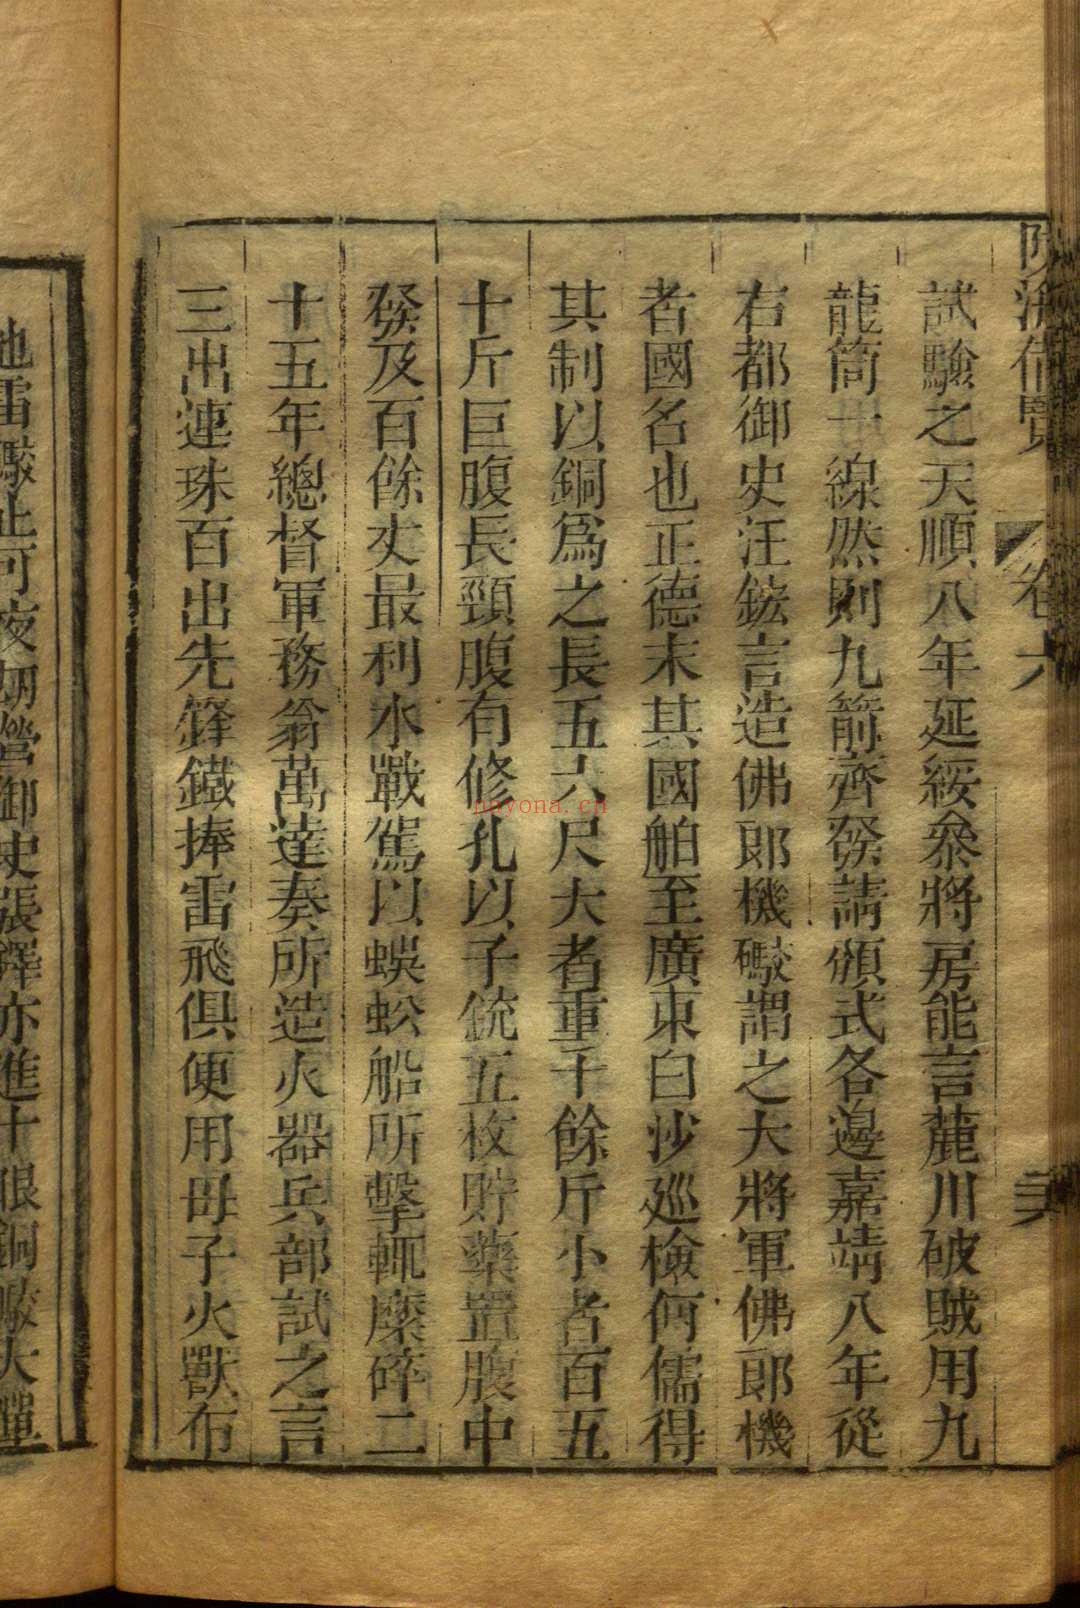 卷六
試驗之天順八年延綏叅將房能言麓川破賊用九
龍筒一線然則九箭齊發請頒式各邊嘉靖八年從
右都御史汪鋐言造佛郎機礮謂之大將軍佛郎機
者國名也正德末其國舶至廣東白沙巡檢何儒得
其制以銅爲之長五六尺大者重千餘斤小者百五
十斤巨腹長頸腹有修孔以子銃五枚貯藥置腹中
發及百餘丈最利水戰駕以蜈蚣船所擊輒糜碎二
十五年總督軍務翁萬達奏所造火器兵部試之言
三出連珠百出先鋒鐵捧雷飛俱便用母子火獸布
地雷礮止可夜刼營御史張鐸亦進十眼銅礮大彈
nayona.cn